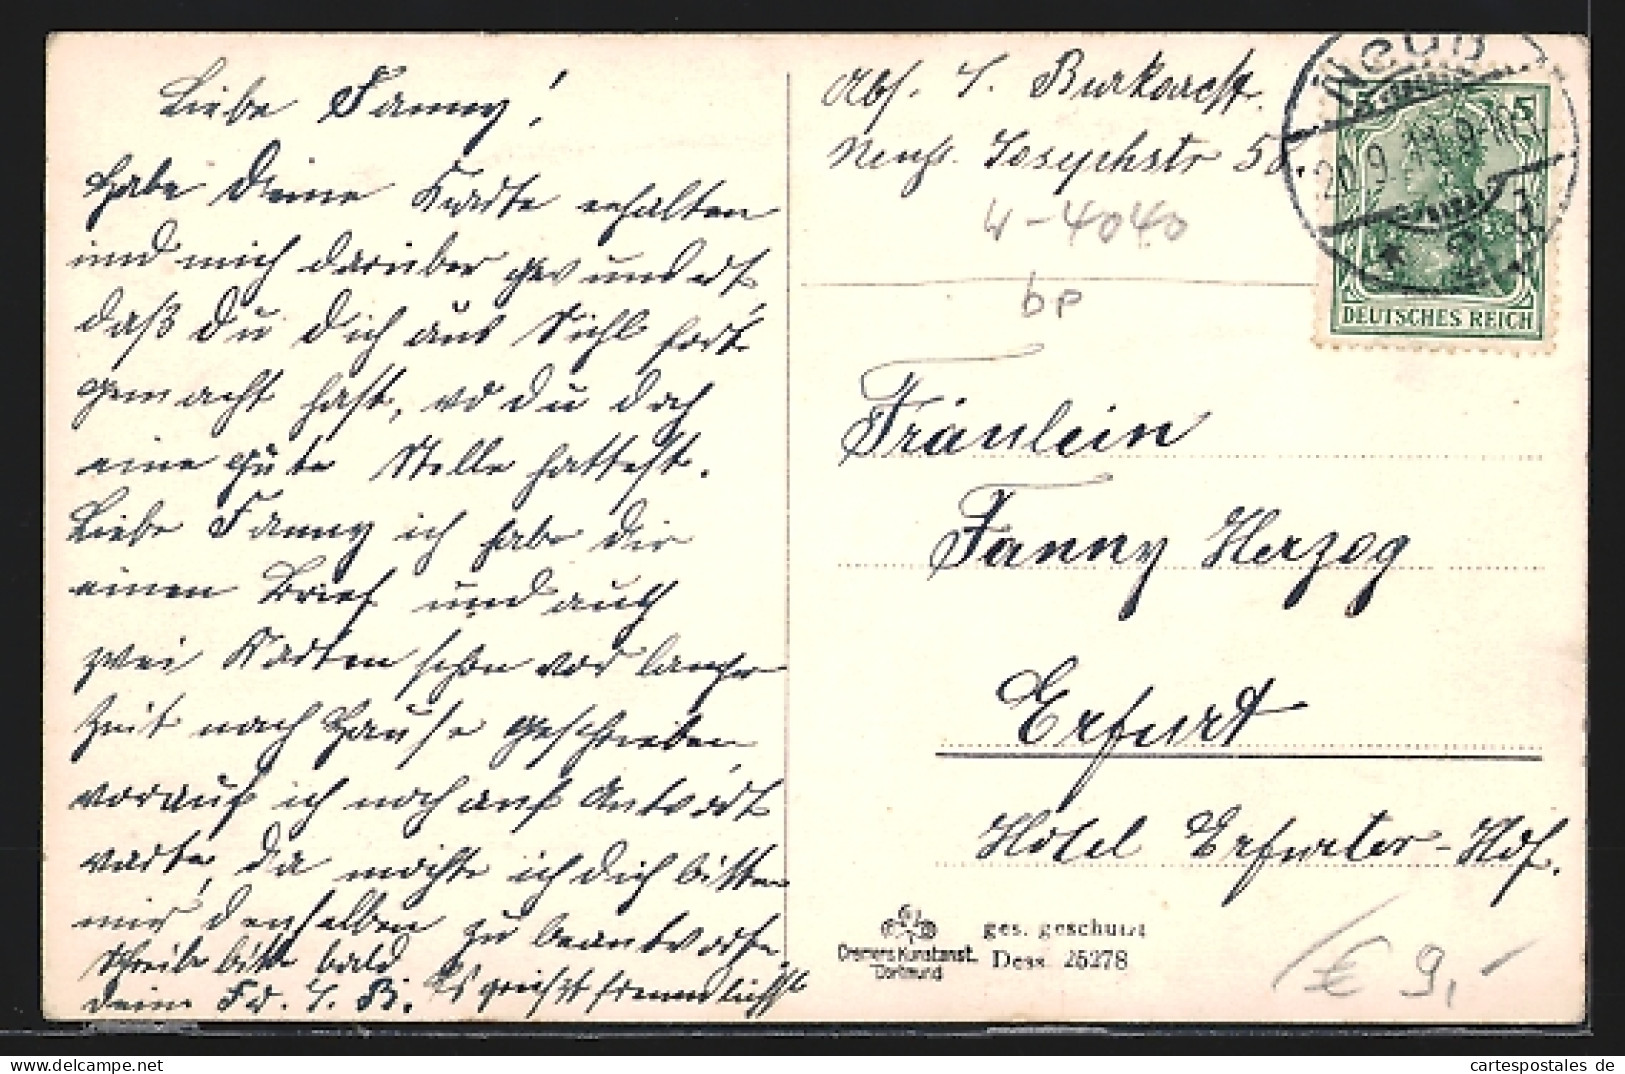 Liebe Fanny!
habe Deine Karte erhalten
und mich darüber gewundert,
daß Du Dich aus Suhl fort
gemacht hast, wo Du doch
eine gute Stelle hattest.
Liebe Fanny ich habe dir
einen Brief und auch
zwei Karten schon vor langer
Zeit nach Hause geschrieben,
worauf ich noch auf Antwort
warte, da möchte ich dich bitten
mir denselben zu beantworten.
Schreibe bitte bald
Es grüßt freundlichst
deine Fr. J. B.
Abs. J. Burkardt.
Neuß. Josephstr 50.
W-4040
bp
Neuß
20.9.13.9-10V
* 2
5
5
DEUTSCHES REICH
Fräulein
Fanny Herzog
Erfurt
Hotel Erfurter-Hof.
Cremers Kunstanst.
Dortmund
ges. geschützt
Dess. 25278
€ 9,-
cartespostales de